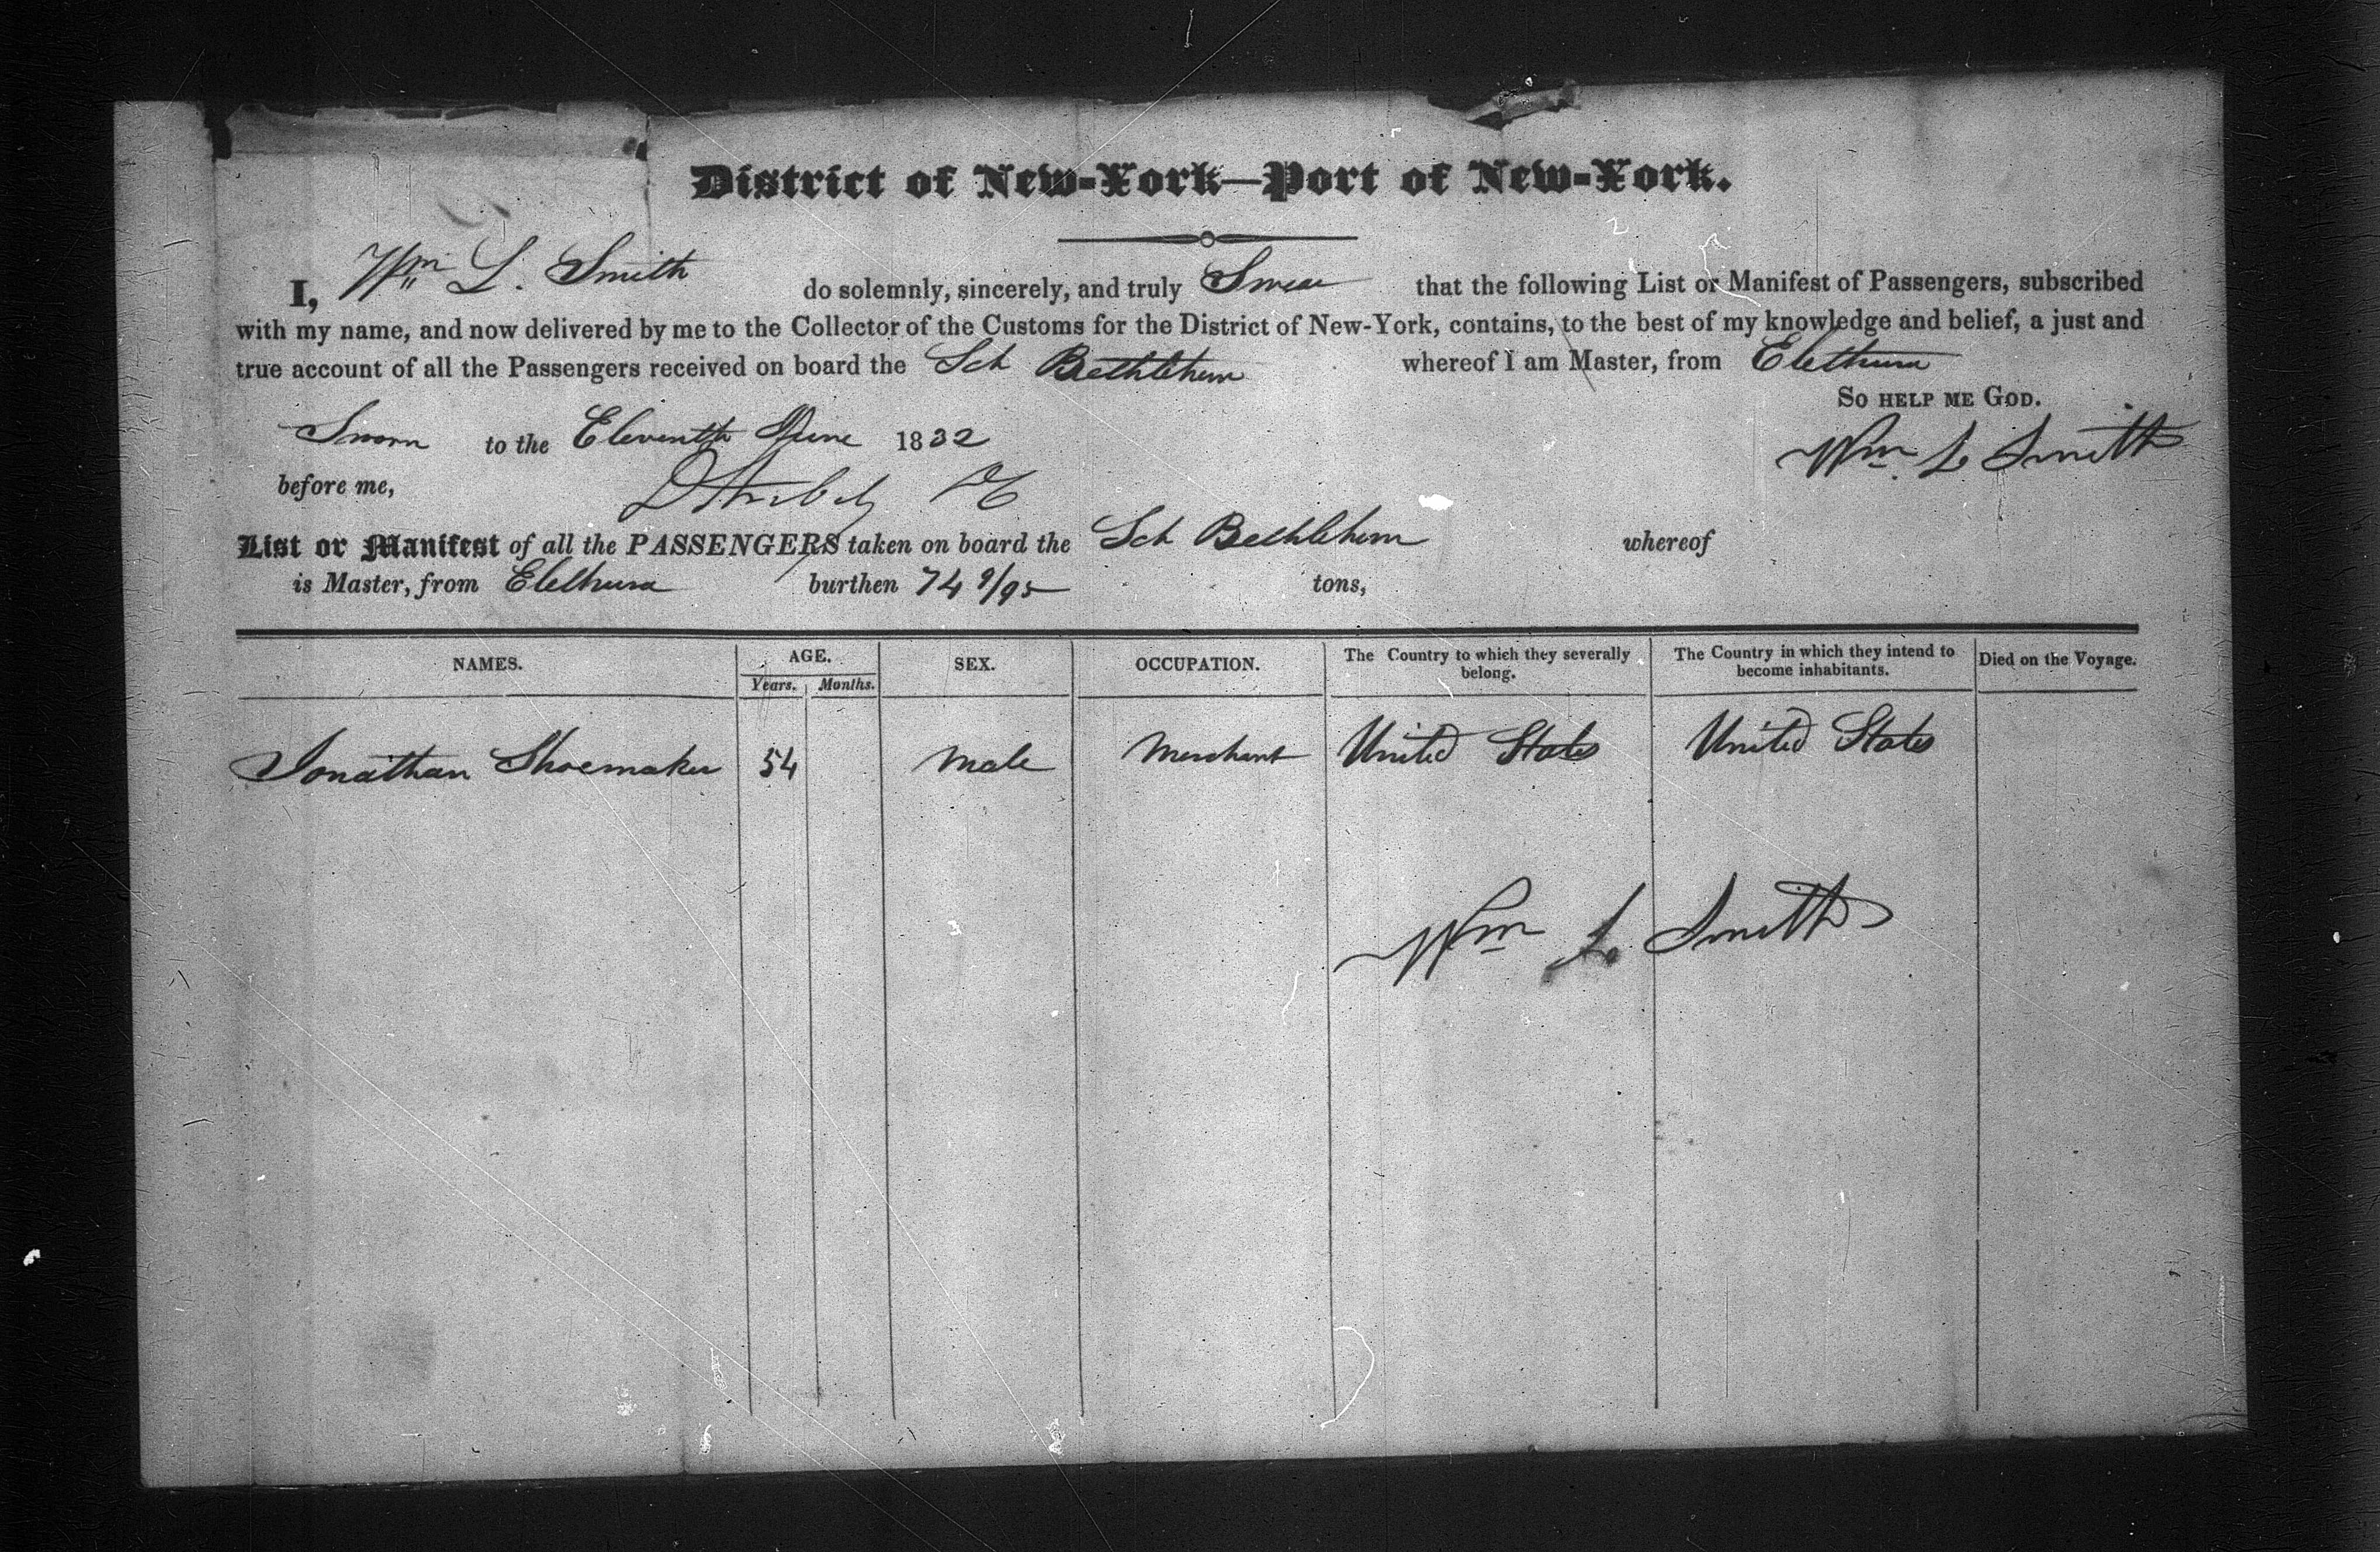 District of New-York—Port of New-York.
I, Wm L. Smith do solemnly, sincerely, and truly Swear that the following List or Manifest of Passengers, subscribed
with my name, and now delivered by me to the Collector of the Customs for the District of New-York, contains, to the best of my knowledge and belief, a just and
true account of all the Passengers received on board the Sch Bethlehem whereof I am Master, from Elethura
So help me God.
Sworn to the Eleventh June 1832
Wm L Smith
before me,
List or Manifest of all the PASSENGERS taken on board the Sch Bethlehem whereof
is Master, from Elethura burthen 74 9/95 tons,
NAMES. AGE. SEX. OCCUPATION. The Country to which they severally belong. The Country in which they intend to become inhabitants. Died on the Voyage.
Years. Months.
Jonathan Shoemaker 54 Male Merchant United States United States
Wm L Smith